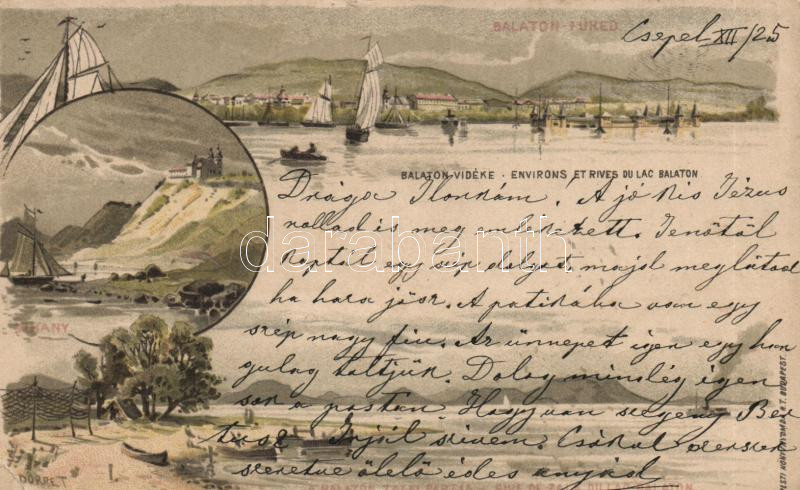 BALATON-FÜRED
Csepel XII/25
BALATON-VIDÉKE · ENVIRONS ET RIVES DU LAC BALATON
Drága Ilonkám! A jó kis Jézus
rollad is meg emlekezett. Jenőtől
kaptál egy szép dolgot majd meglátod
ha haza jösz. A patikába van egy
szép nagy fiu. Az ünnepet igen egy han
gulag taltjuk. Dolog mindég igen
sok a postan. Hogy van szegeny Ber
tus? Irjál szivem. Csókol ezerszer
szeretve ölelő édes anyád
TIHANY
DÖRRE T
I.
darabanth
.com
BUDAPEST.